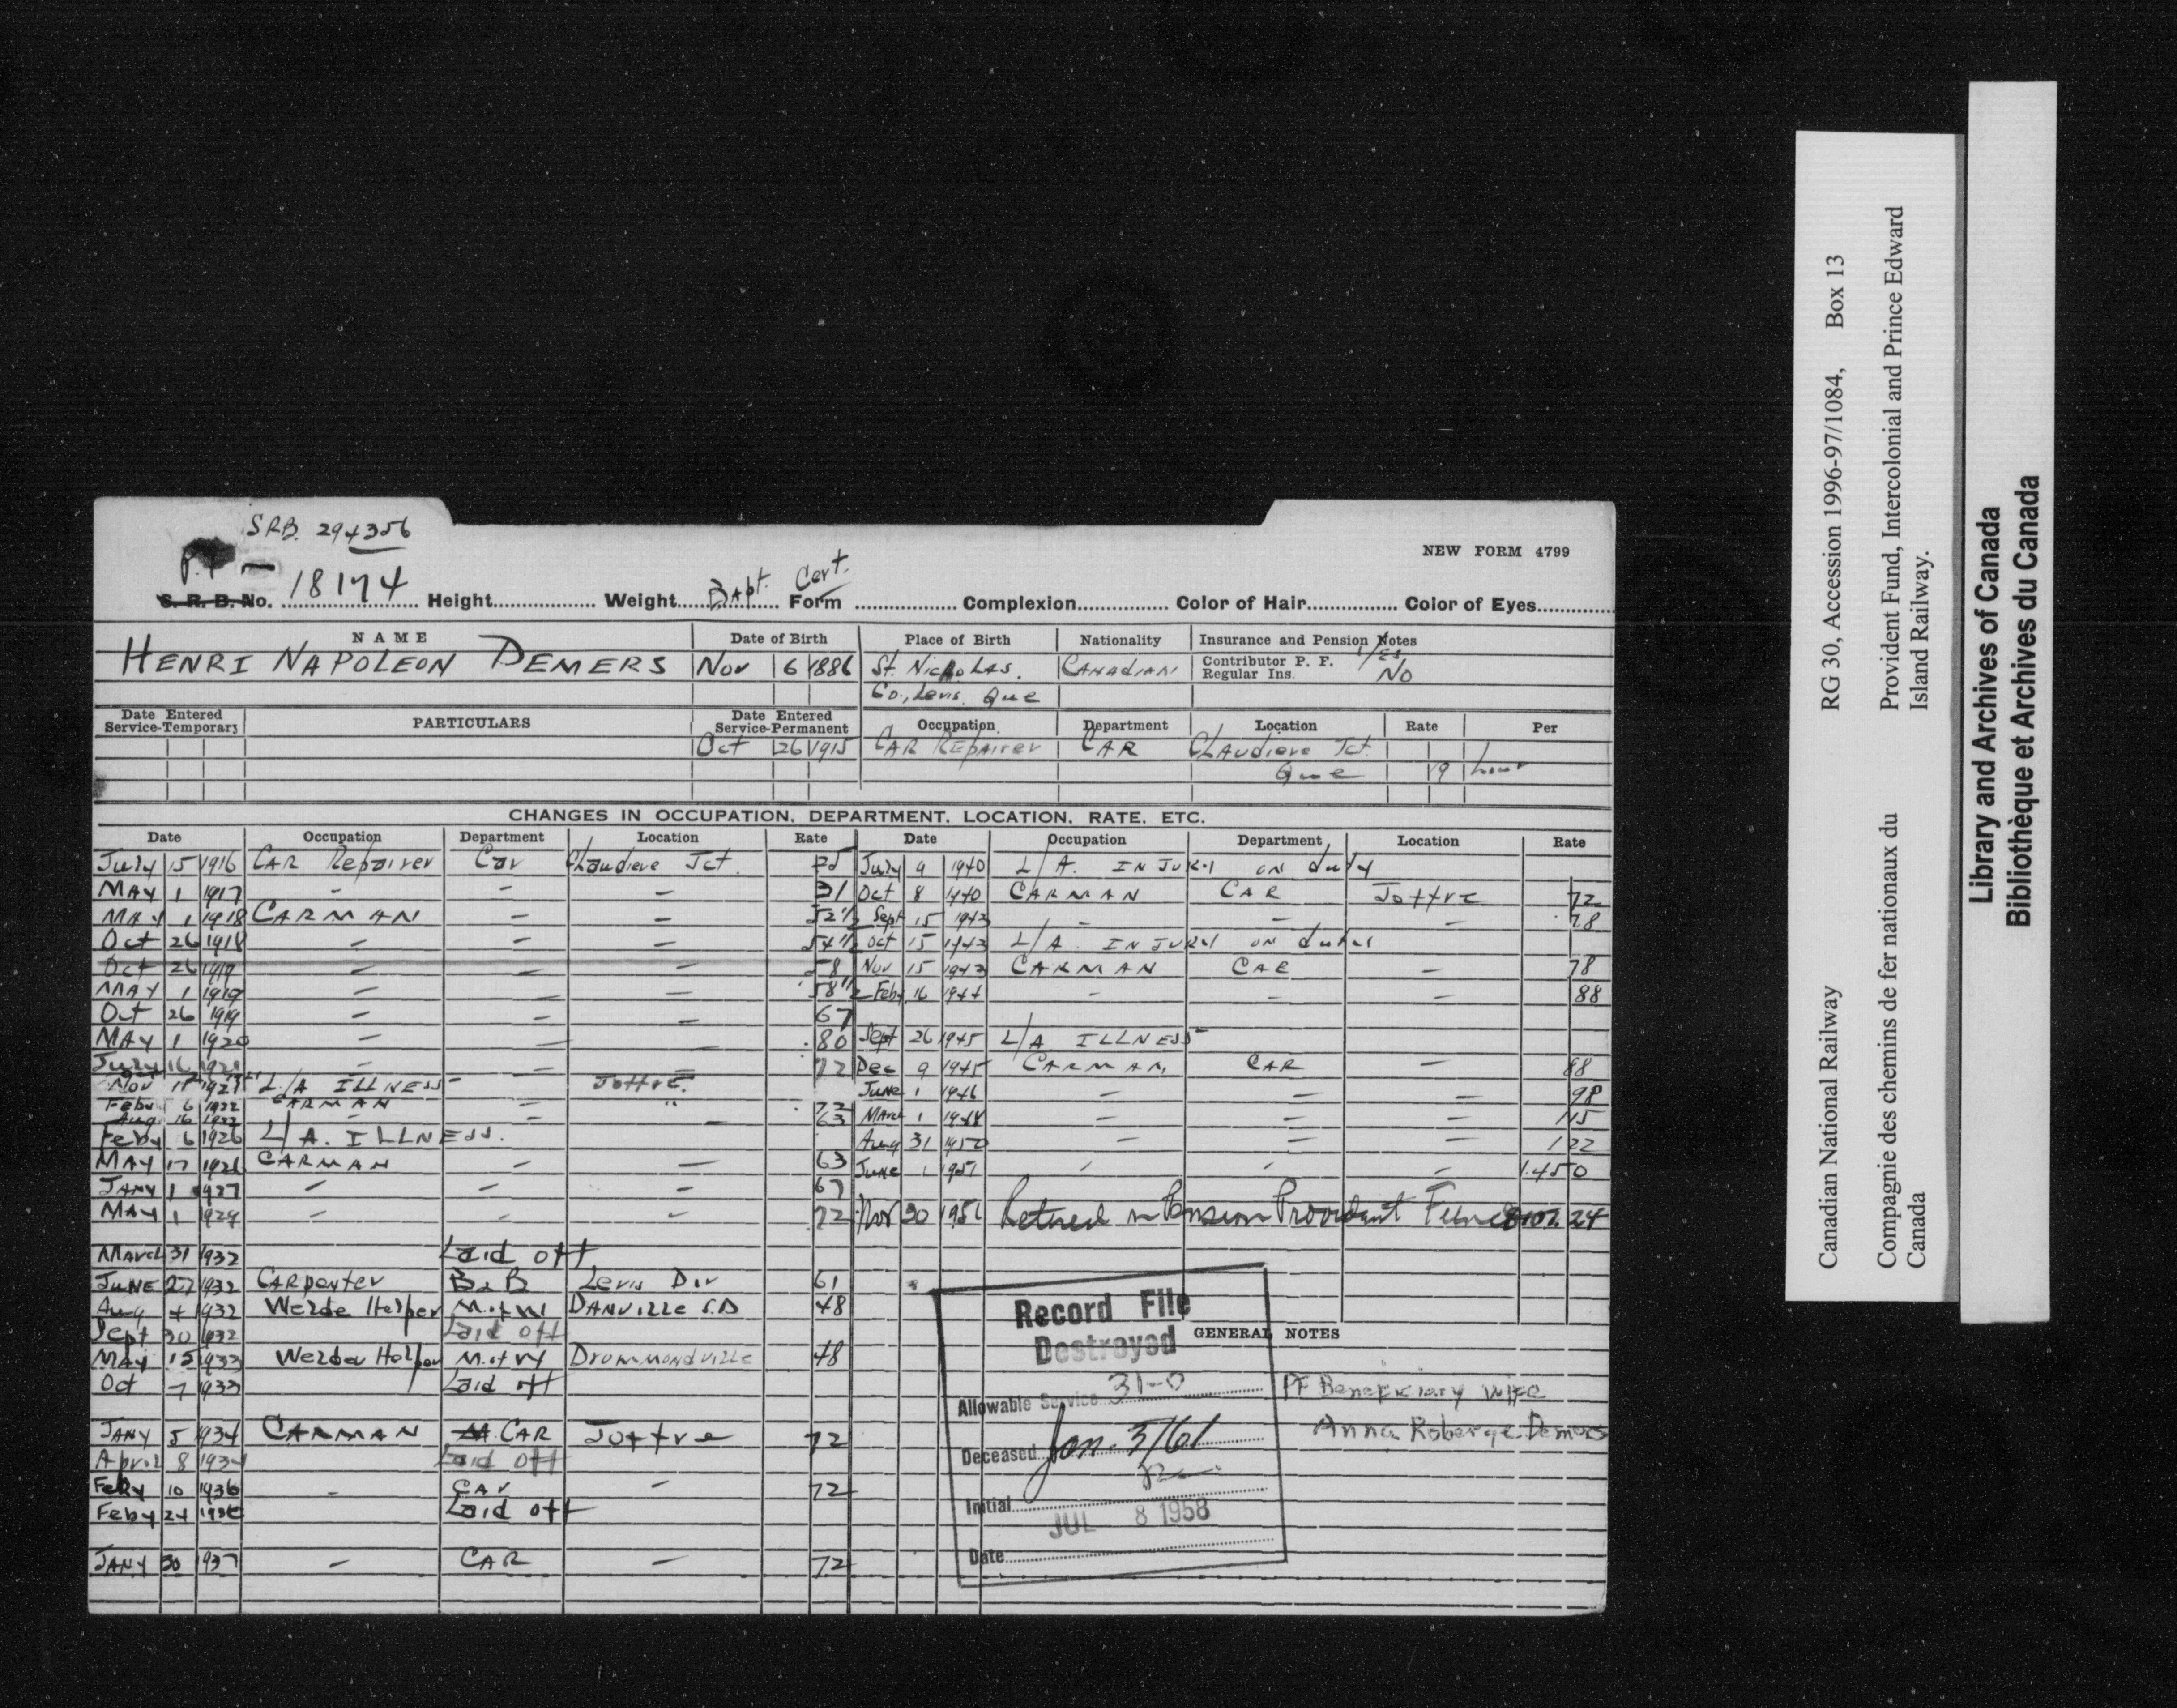 S.R.B. 294356
NEW FORM 4799
P.F.
S. R. B. No. 18174 Height Weight Bapt. Cert. Form Complexion Color of Hair Color of Eyes
NAME Date of Birth Place of Birth Nationality Insurance and Pension Notes
HENRI NAPOLEON DEMERS Nov 6 1886 St. Nicholas. CANADIAN Contributor P. F. Yes
Regular Ins. No
Co., Levis, Que
Date Entered Service-Temporary PARTICULARS Date Entered Service-Permanent Occupation Department Location Rate Per
Oct 26 1915 CAR Repairer CAR Chaudiere Jct.
Que 19 hour
CHANGES IN OCCUPATION, DEPARTMENT, LOCATION, RATE, ETC.
Date Occupation Department Location Rate
July 15 1916 CAR Repairer Car Chaudiere Jct.
MAY 1 1917 - - - 31
MAY 1 1918 CARMAN - - 52½
Oct 26 1918 - - - 54½
Oct 26 1918 - - - 58
MAY 1 1919 - - - 58½
Oct 26 1919 - - - 67
MAY 1 1920 - - - 80
July 16 1921 - - - 72
Nov 1921 L/A ILLNESS Joffre
Feby 6 1922 CARMAN - " 72
Aug 16 1922 - - - 63
Feby 6 1926 L/A. ILLNESS.
MAY 17 1926 CARMAN - - 63
JANY 1 1927 - - - 67
MAY 1 1929 - - - 72
March 31 1932 Laid off
JUNE 27 1932 CARpenter B&B Levis Div 61
Aug 4 1932 Welde Helper M. of W DANVILLE S.D 48
Sept 30 1932 Laid off
MAY 15 1933 Welder Helper M. of W Drummondville 48
Oct 7 1933 Laid off
JANY 5 1934 CARMAN CAR Joffre 72
April 8 1934 Laid off
FeBy 10 1936 - CAr - 72
Feby 24 1936 Laid off
JANY 30 1937 - CAR - 72
Date Occupation Department Location Rate
July 9 1940 L/A. INJURY on duty
Oct 8 1940 CARMAN CAR Joffre 72
Sept 15 1943 - - - 78
Oct 15 1943 L/A. INJURY on duty
Nov 15 1943 CARMAN CAR - 78
Feby 16 1944 - - - 88
Sept 26 1945 L/A ILLNESS
Dec 9 1945 CARMAN CAR - 88
June 1 1946 - - - 98
March 1 1948 - - - 115
Aug 31 1950 - - - 122
June 1 1951 - - - 1.450
Nov 30 1951 Retired on Pension Provident Fund $102.24
Record File
Destroyed
Allowable Service 31-0
Deceased Jan. 3/61
Initial
JUL 8 1958
Date
GENERAL NOTES
PF Beneficiary wife
Anna Roberge Demers
Canadian National Railway RG 30, Accession 1996-97/1084, Box 13
Compagnie des chemins de fer nationaux du Canada
Provident Fund, Intercolonial and Prince Edward Island Railway.
Library and Archives of Canada
Bibliothèque et Archives du Canada